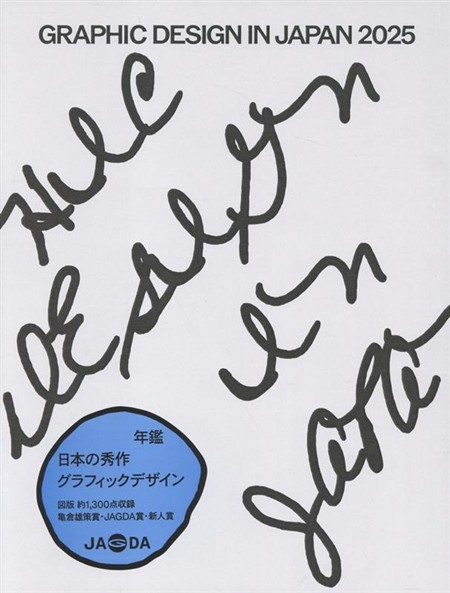 GRAPHIC DESIGN IN JAPAN 2025
DESIGN
in
年鑑
日本の秀作
グラフィックデザイン
図版 約1,300点収録
亀倉雄策賞・JAGDA賞・新人賞
JAGDA